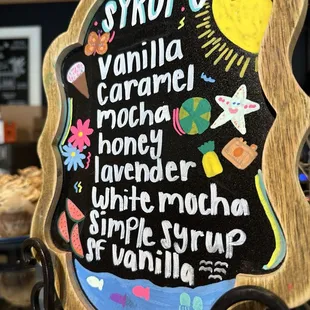 SYRUPS
vanilla
caramel
mocha
honey
lavender
white mocha
simple syrup
sf vanilla